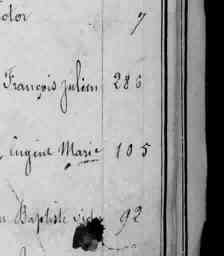 ctor 7
François julien 286
Eugène Marie 105
Baptiste vict 92